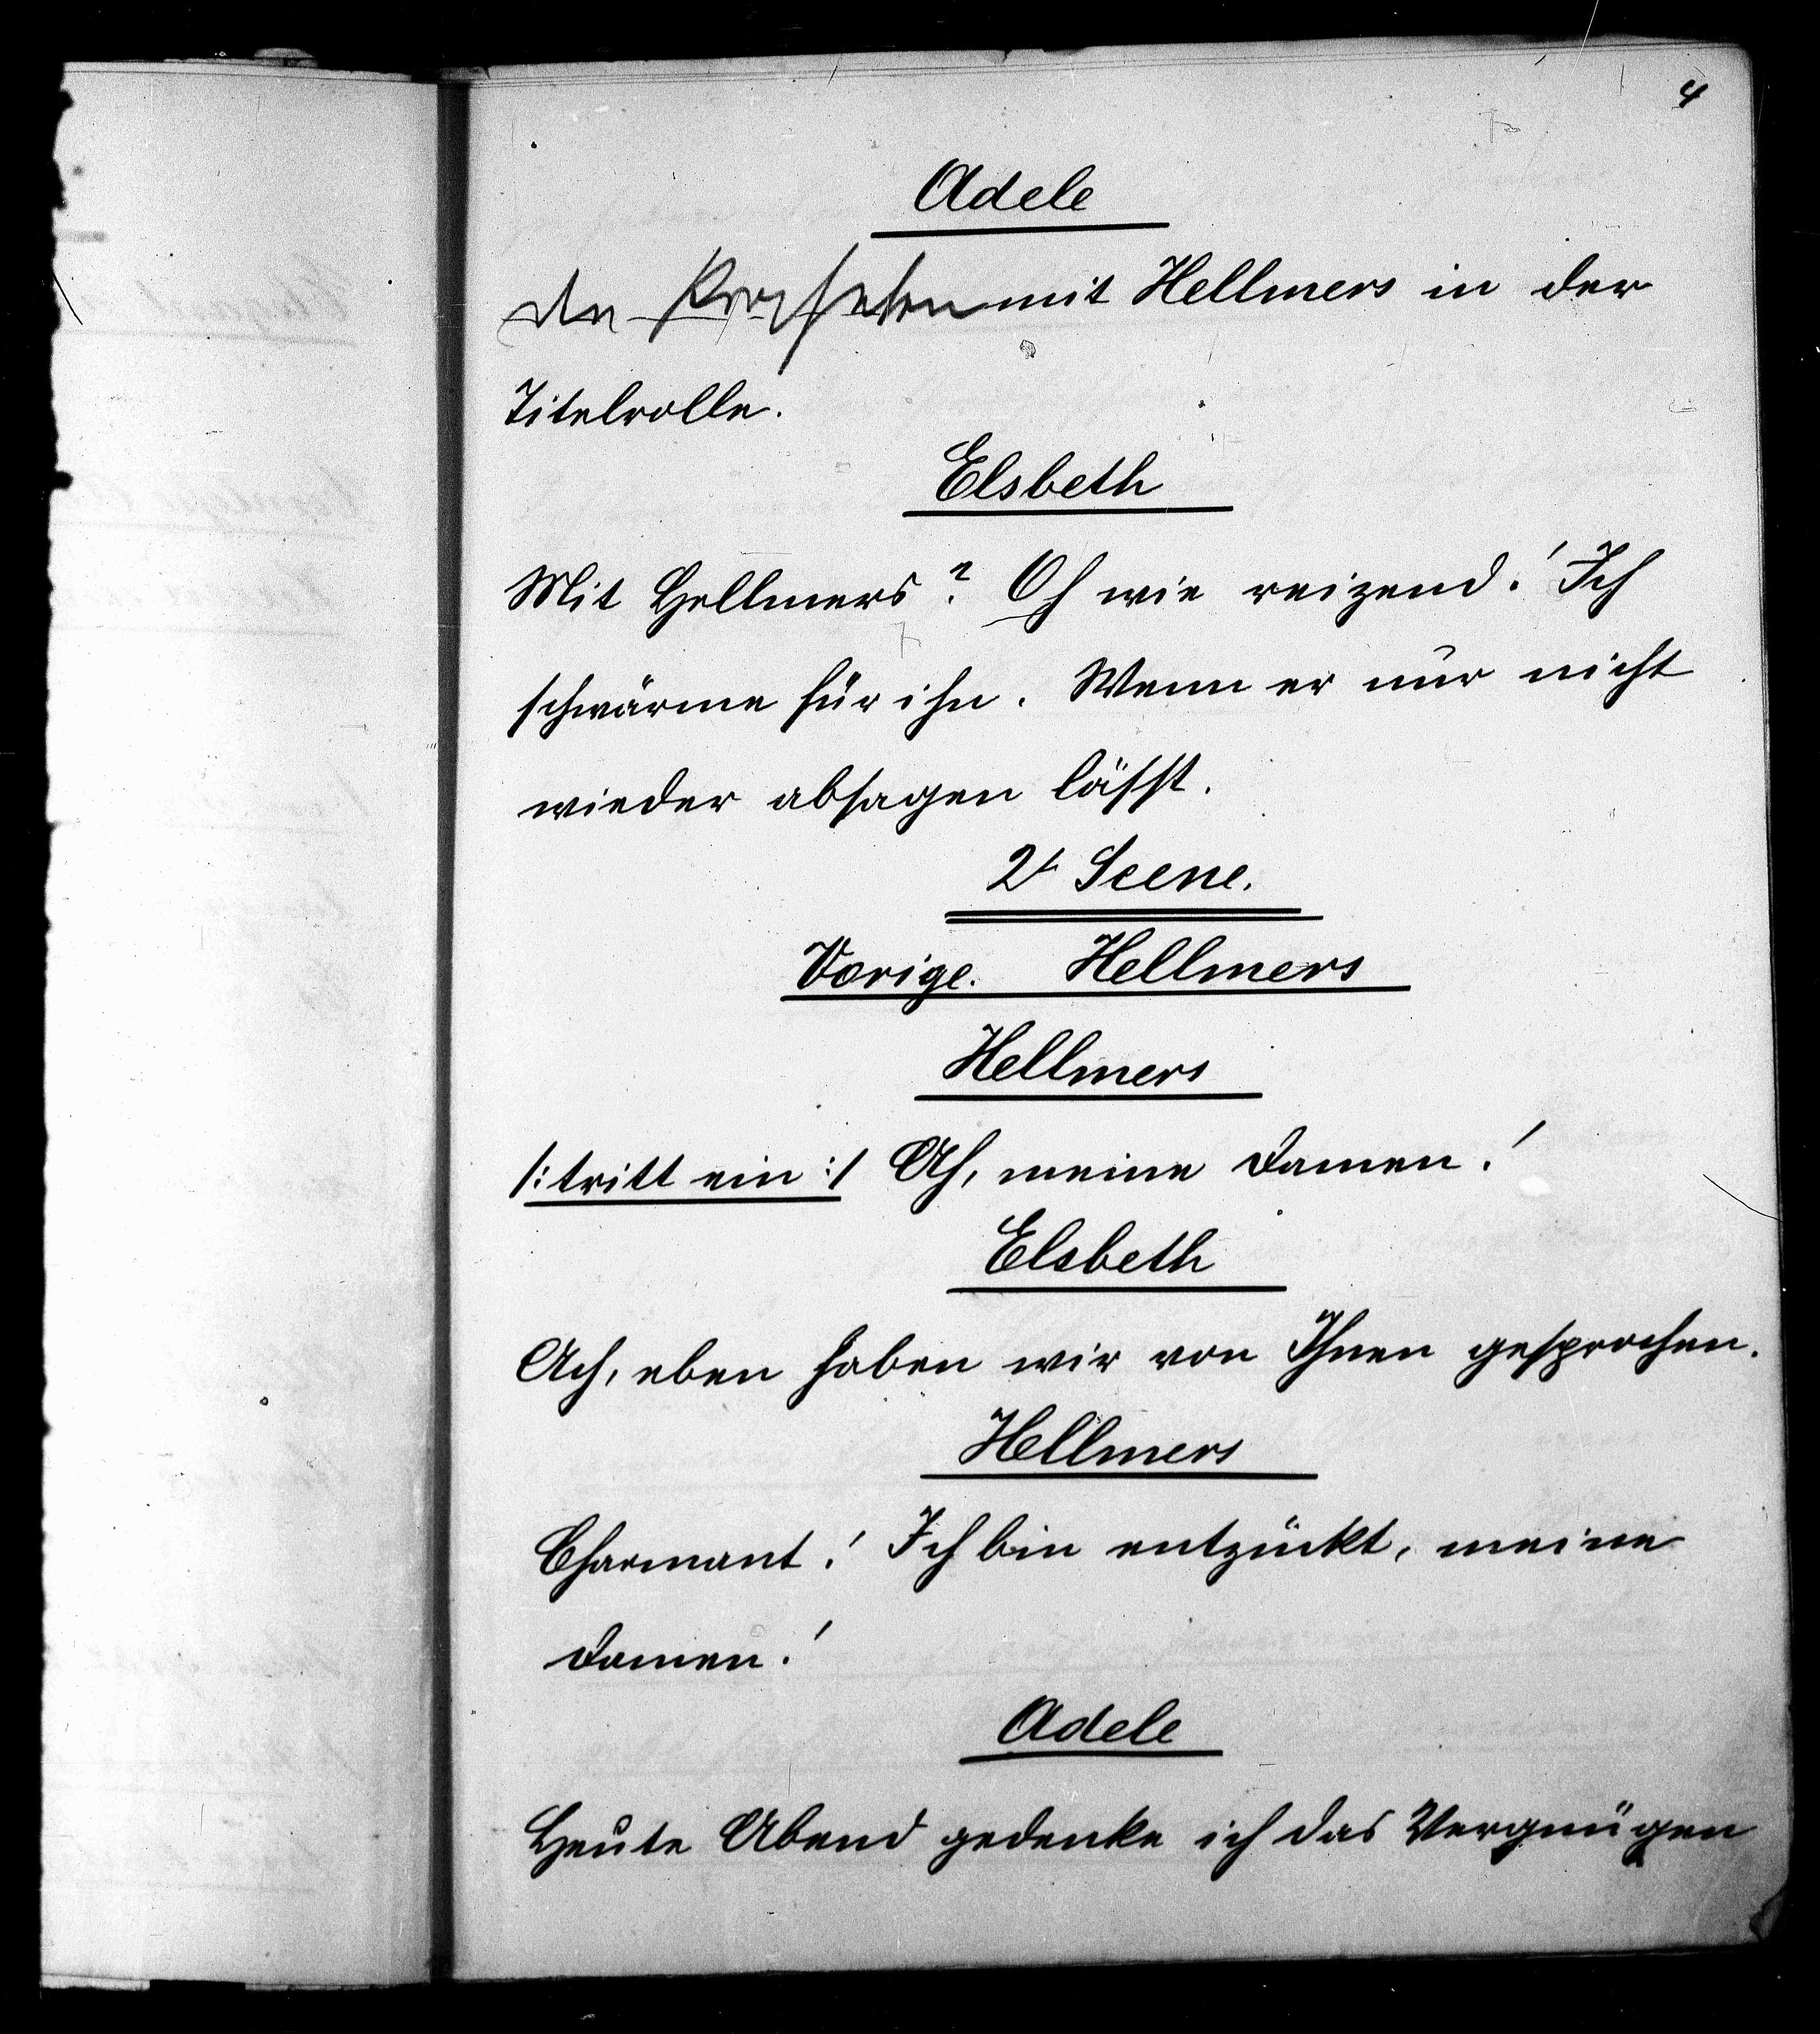 4
Adele
mit Hellmers in der
Titelrolle.
Elsbeth
Mit Hellmers? Oh wie reizend! Ich
schwärme für ihn. Wenn er nur nicht
wieder absagen lässt.
2t Scene.
Vorige. Hellmers
Hellmers
/: tritt ein :/ Ah, meine Damen!
Elsbeth
Ach, eben haben wir von Ihnen gesprochen.
Hellmers
Charmant! Ich bin entzückt, meine
Damen!
Adele
Heute Abend gedenke ich das Vergnügen